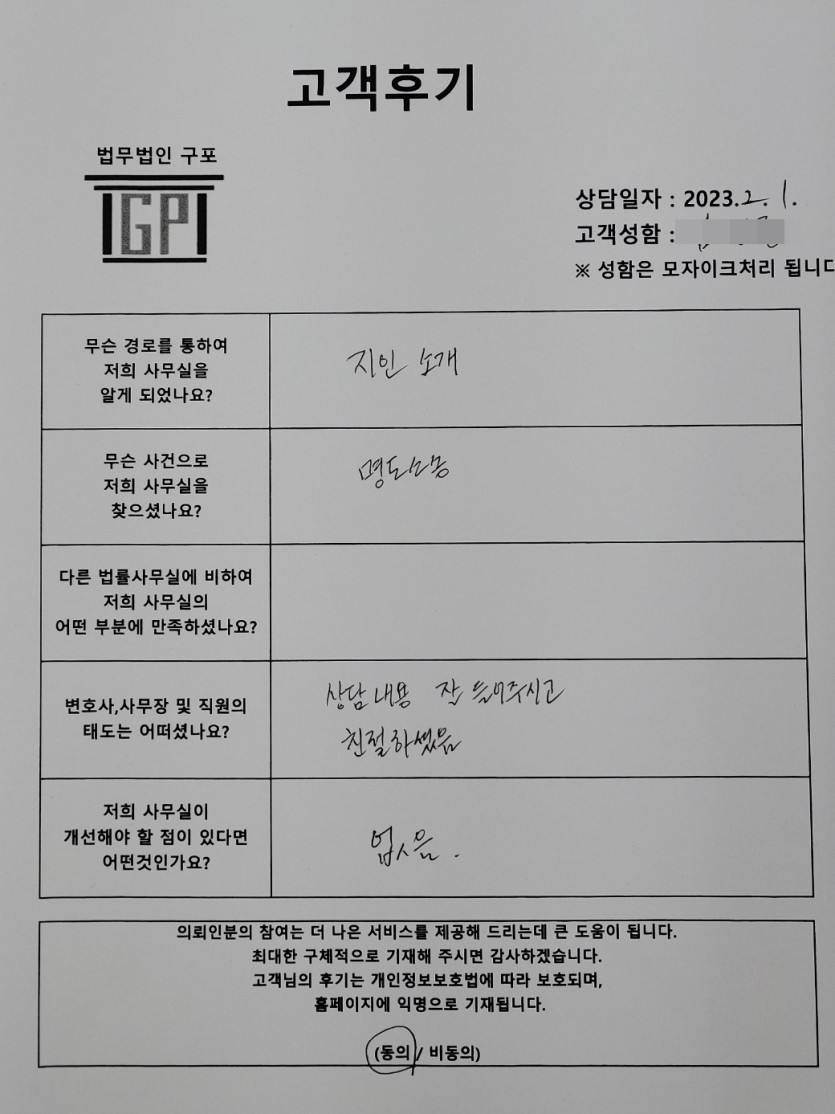 고객후기
법무법인 구포
GP
상담일자 : 2023.2.1.
고객성함 :
※ 성함은 모자이크처리 됩니다
무슨 경로를 통하여
저희 사무실을
알게 되었나요?
지인 소개
무슨 사건으로
저희 사무실을
찾으셨나요?
명도소송
다른 법률사무실에 비하여
저희 사무실의
어떤 부분에 만족하셨나요?
변호사,사무장 및 직원의
태도는 어떠셨나요?
상담내용 잘 들어주시고
친절하셨음
저희 사무실이
개선해야 할 점이 있다면
어떤것인가요?
없음.
의뢰인분의 참여는 더 나은 서비스를 제공해 드리는데 큰 도움이 됩니다.
최대한 구체적으로 기재해 주시면 감사하겠습니다.
고객님의 후기는 개인정보보호법에 따라 보호되며,
홈페이지에 익명으로 기재됩니다.
(동의 / 비동의)